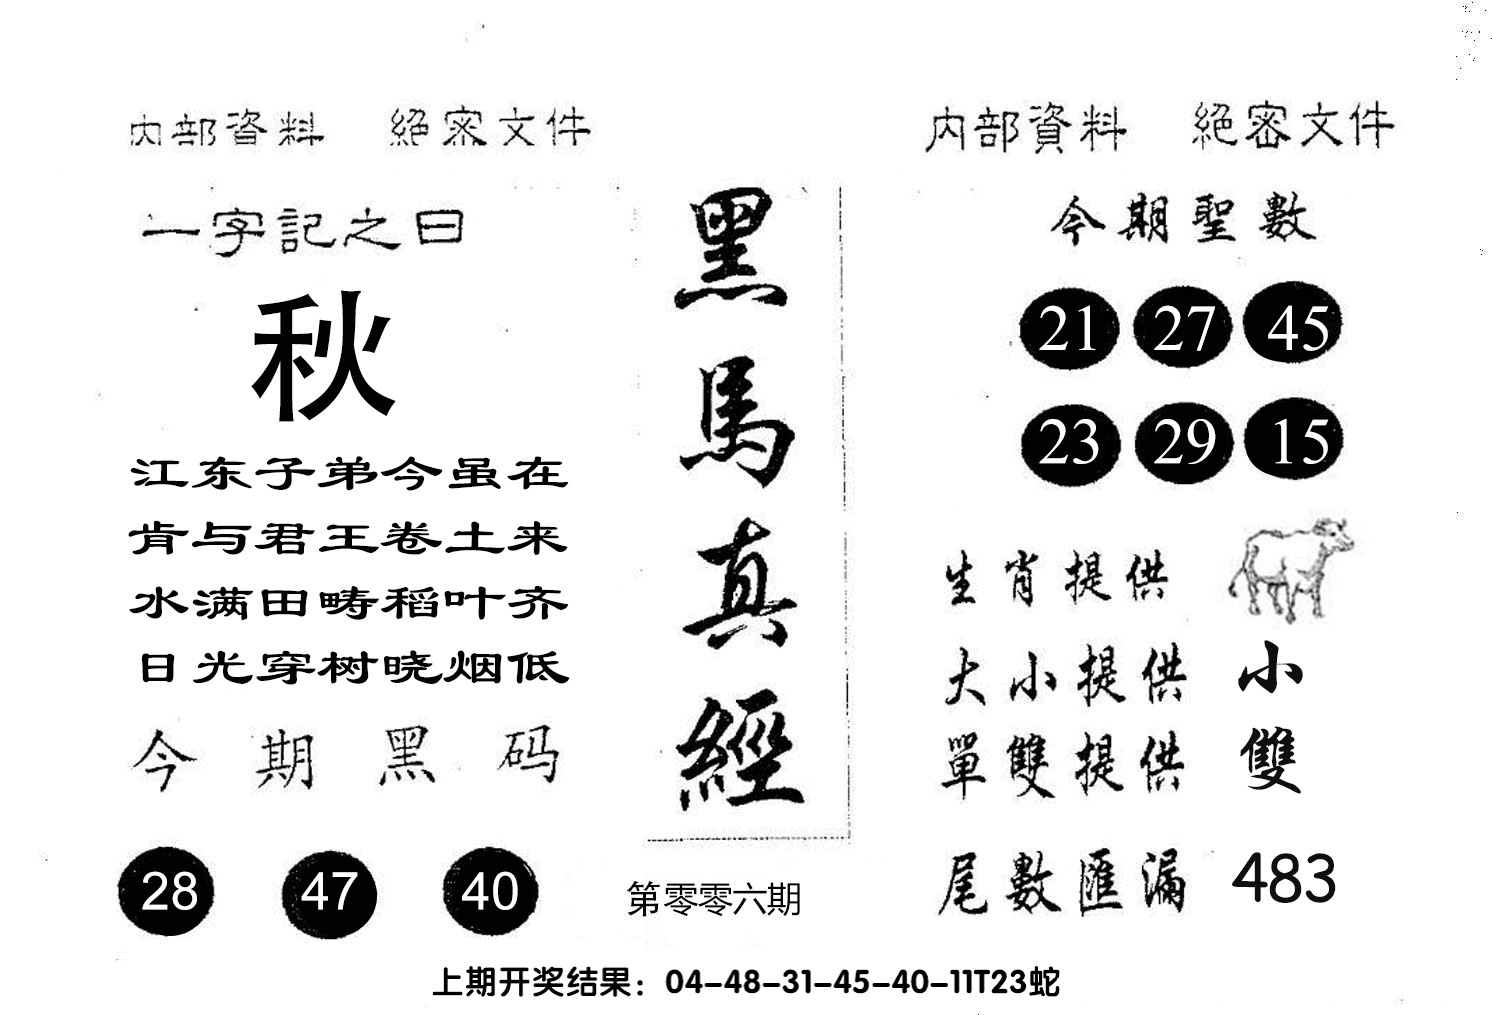 内部資料 絕密文件
一字記之曰
秋
江东子弟今虽在
肯与君王卷土来
水满田畴稻叶齐
日光穿树晓烟低
今期黑码
28 47 40
黑馬真經
第零零六期
内部資料 絕密文件
今期聖數
21 27 45
23 29 15
生肖提供
大小提供 小
單雙提供 雙
尾數匯漏 483
上期开奖结果：04-48-31-45-40-11T23蛇